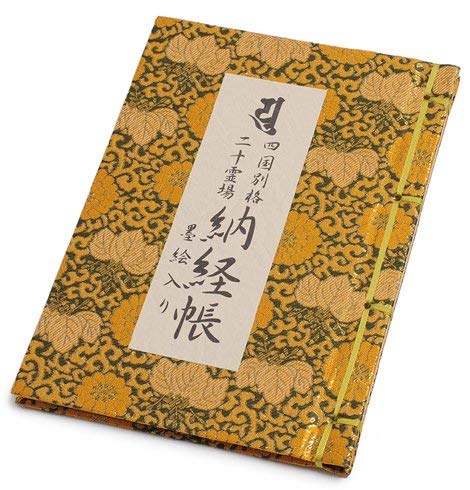 四国別格
二十霊場
納経帳
墨絵入り